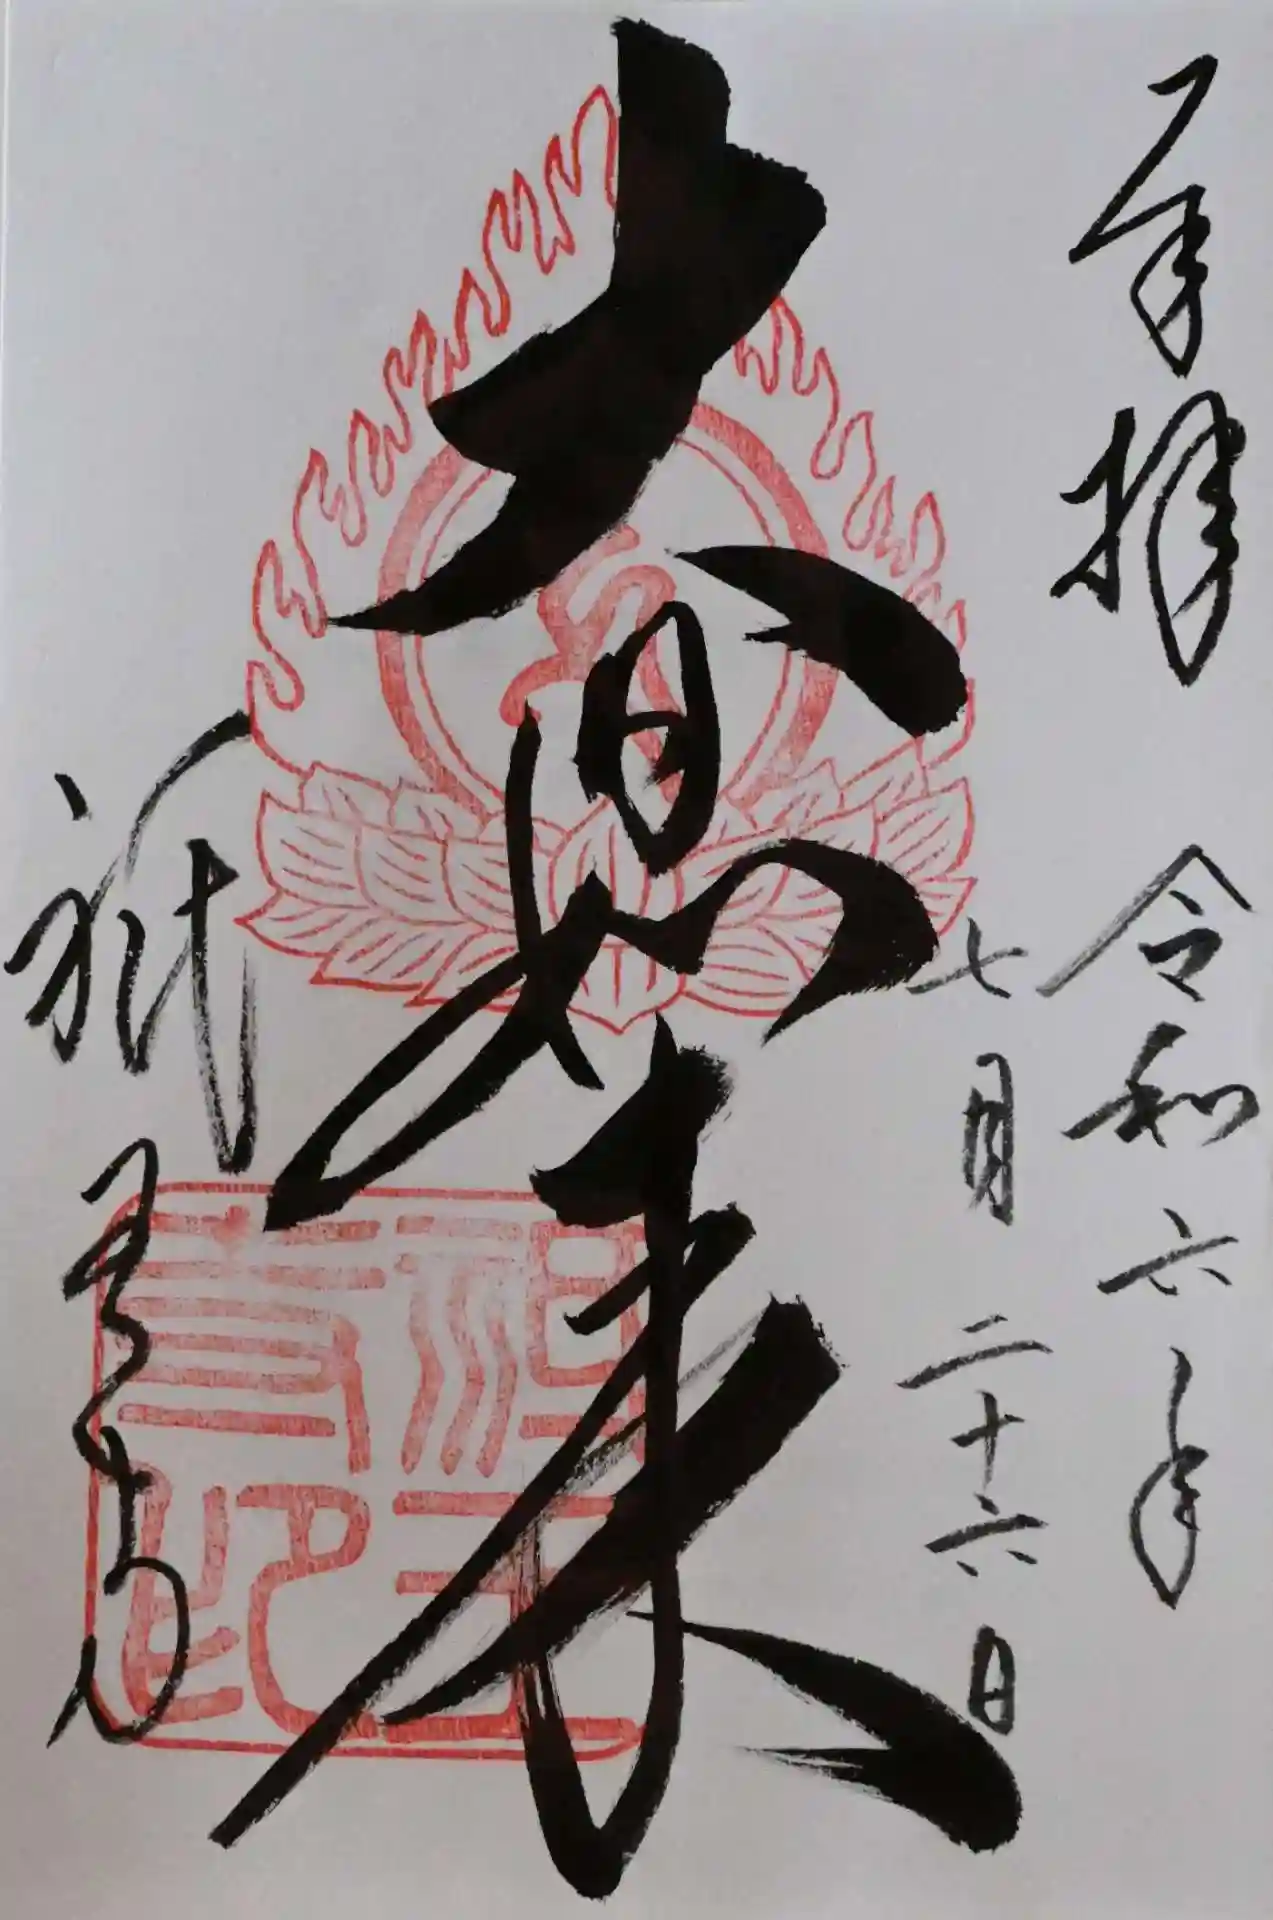 奉拝
令和六年
七月二十六日
大日如来
祇王寺